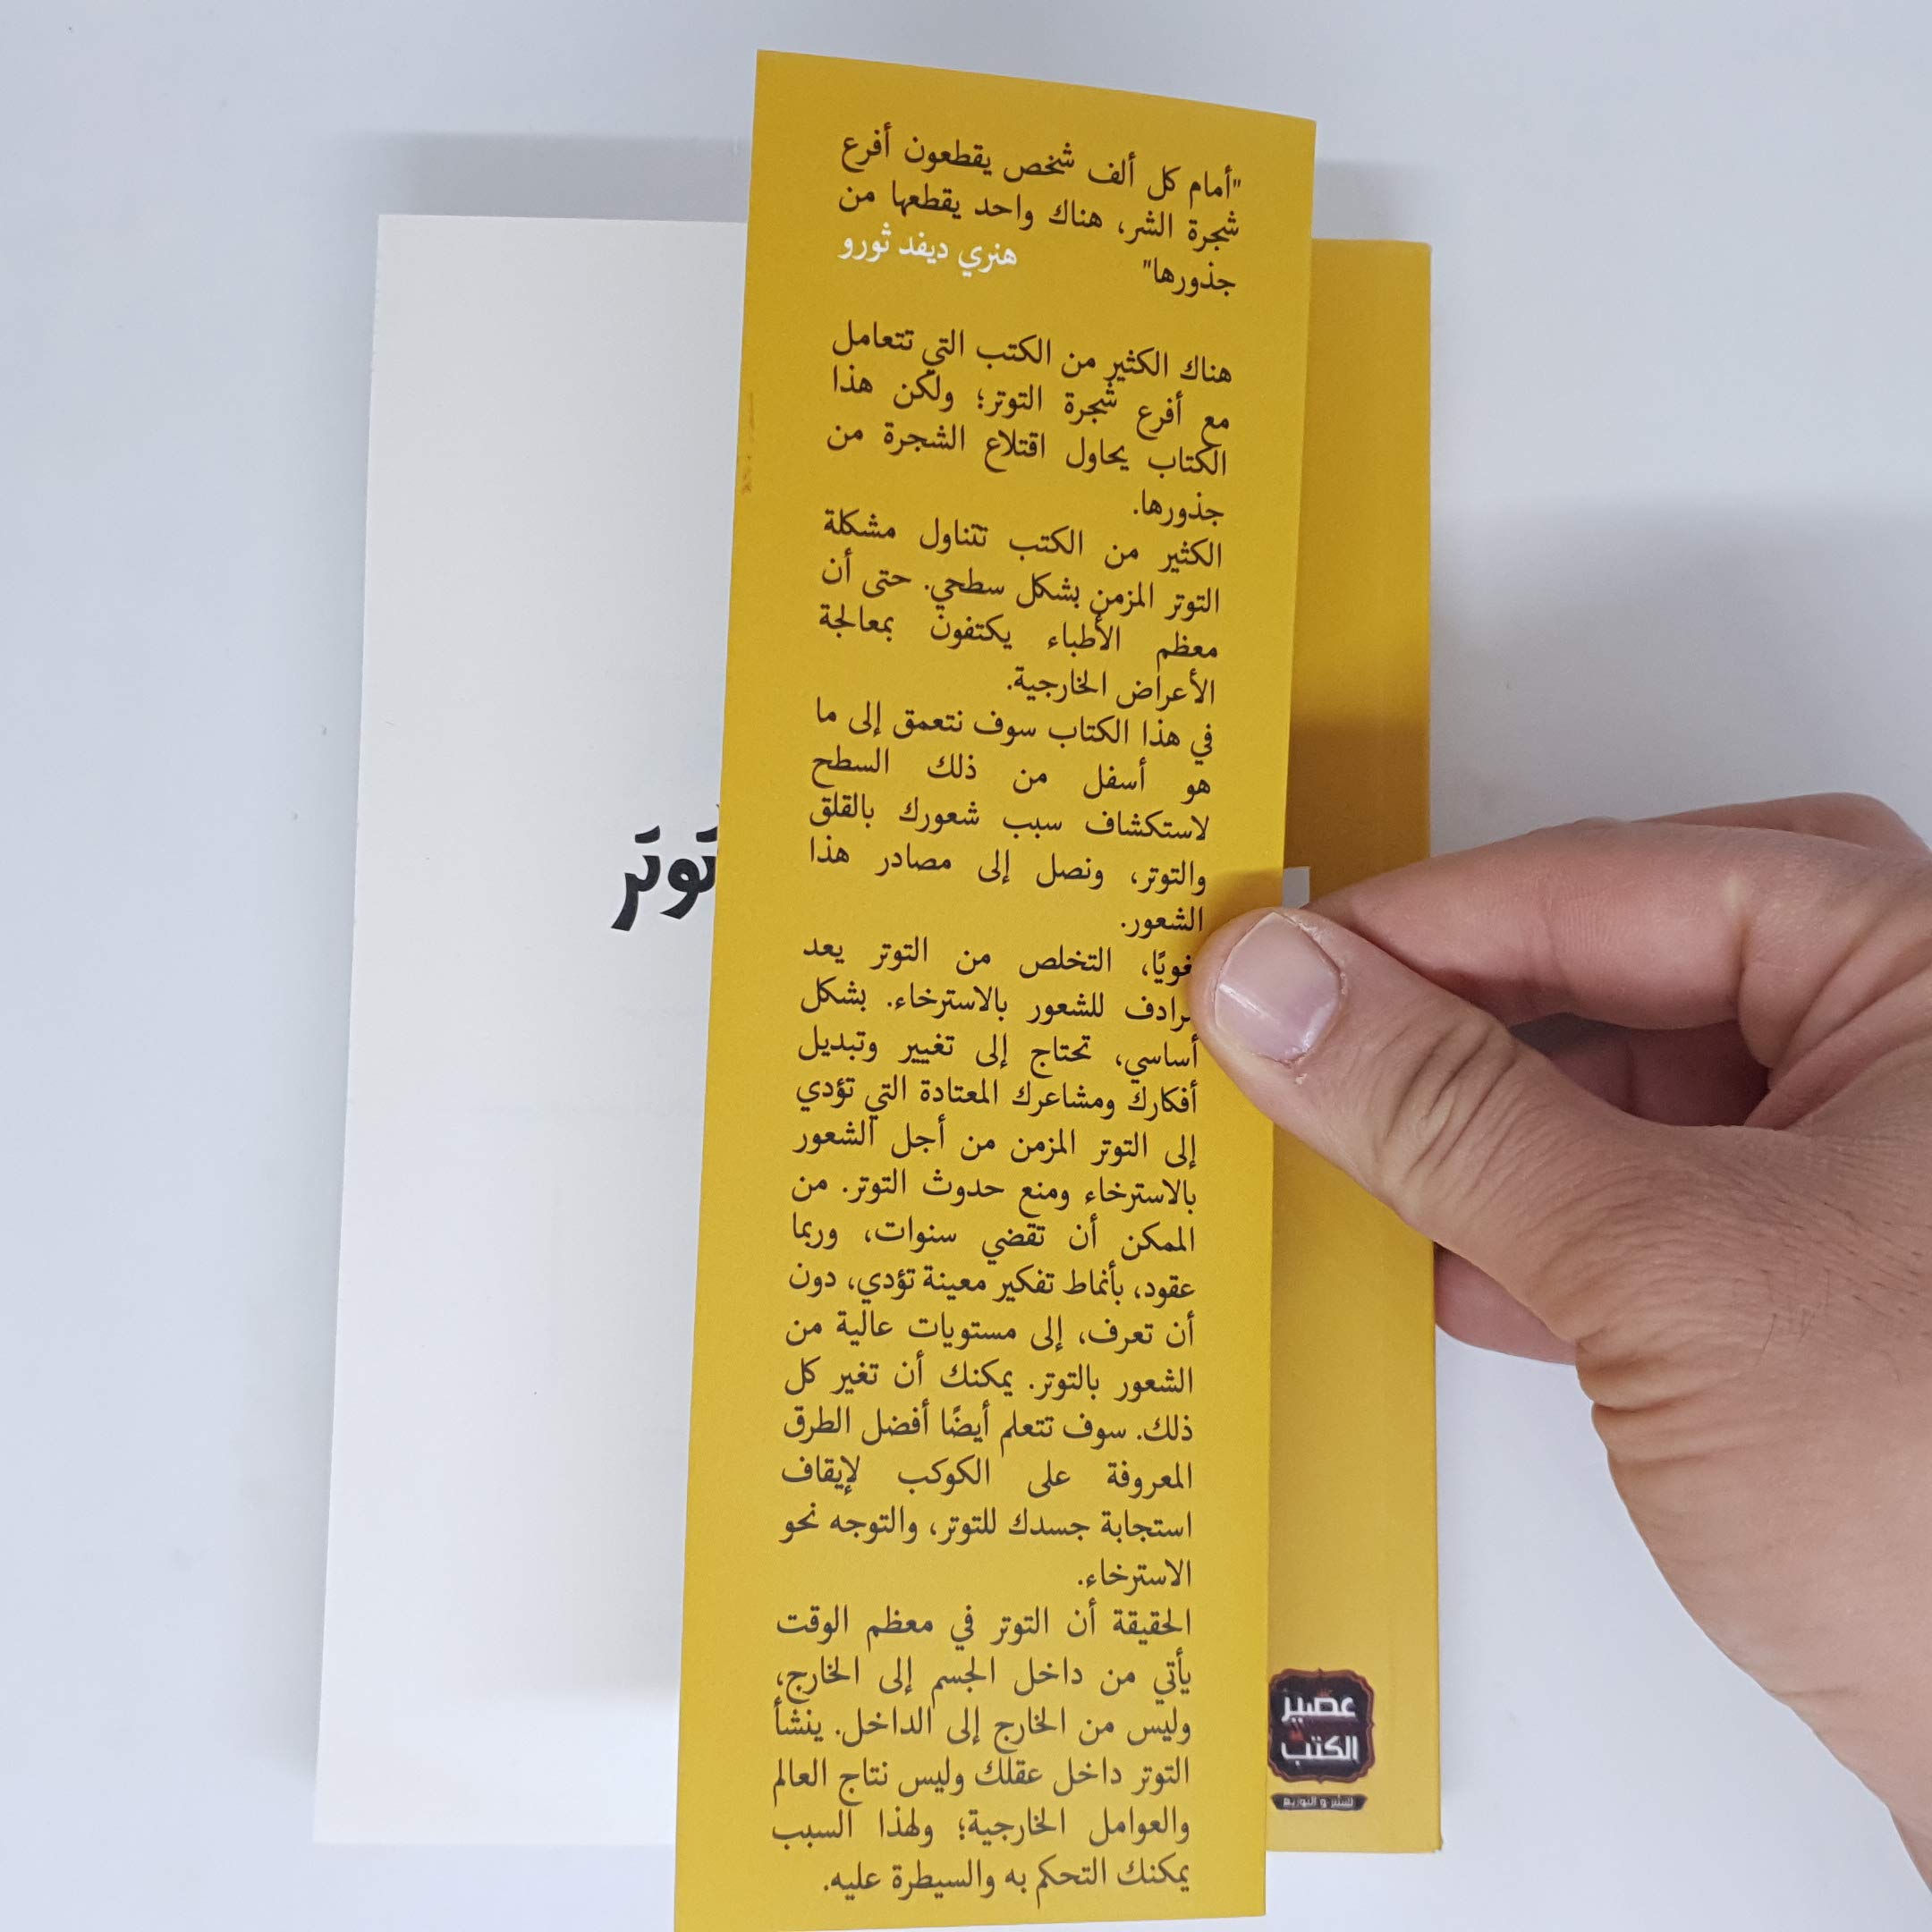 "أمام كل ألف شخص يقطعون أفرع
شجرة الشر، هناك واحد يقطعها من
جذورها"
هنري ديفد ثورو
هناك الكثير من الكتب التي تتعامل
مع أفرع شجرة التوتر؛ ولكن هذا
الكتاب يحاول اقتلاع الشجرة من
جذورها.
الكثير من الكتب تتناول مشكلة
التوتر المزمن بشكل سطحي. حتى أن
معظم الأطباء يكتفون بمعالجة
الأعراض الخارجية.
في هذا الكتاب سوف نتعمق إلى ما
هو أسفل من ذلك السطح
لاستكشاف سبب شعورك بالقلق
والتوتر، ونصل إلى مصادر هذا
الشعور.
التخلص من التوتر يعد
للشعور بالاسترخاء. بشكل
أساسي، تحتاج إلى تغيير وتبديل
أفكارك ومشاعرك المعتادة التي تؤدي
إلى التوتر المزمن من أجل الشعور
بالاسترخاء ومنع حدوث التوتر. من
الممكن أن تقضي سنوات، وربما
عقود، بأنماط تفكير معينة تؤدي، دون
أن تعرف، إلى مستويات عالية من
الشعور بالتوتر. يمكنك أن تغير كل
ذلك. سوف تتعلم أيضًا أفضل الطرق
المعروفة على الكوكب لإيقاف
استجابة جسدك للتوتر، والتوجه نحو
الاسترخاء.
الحقيقة أن التوتر في معظم الوقت
يأتي من داخل الجسم إلى الخارج،
وليس من الخارج إلى الداخل. ينشأ
التوتر داخل عقلك وليس نتاج العالم
والعوامل الخارجية؛ ولهذا السبب
يمكنك التحكم به والسيطرة عليه.
عصير
الكتب
للنشر و التوزيع